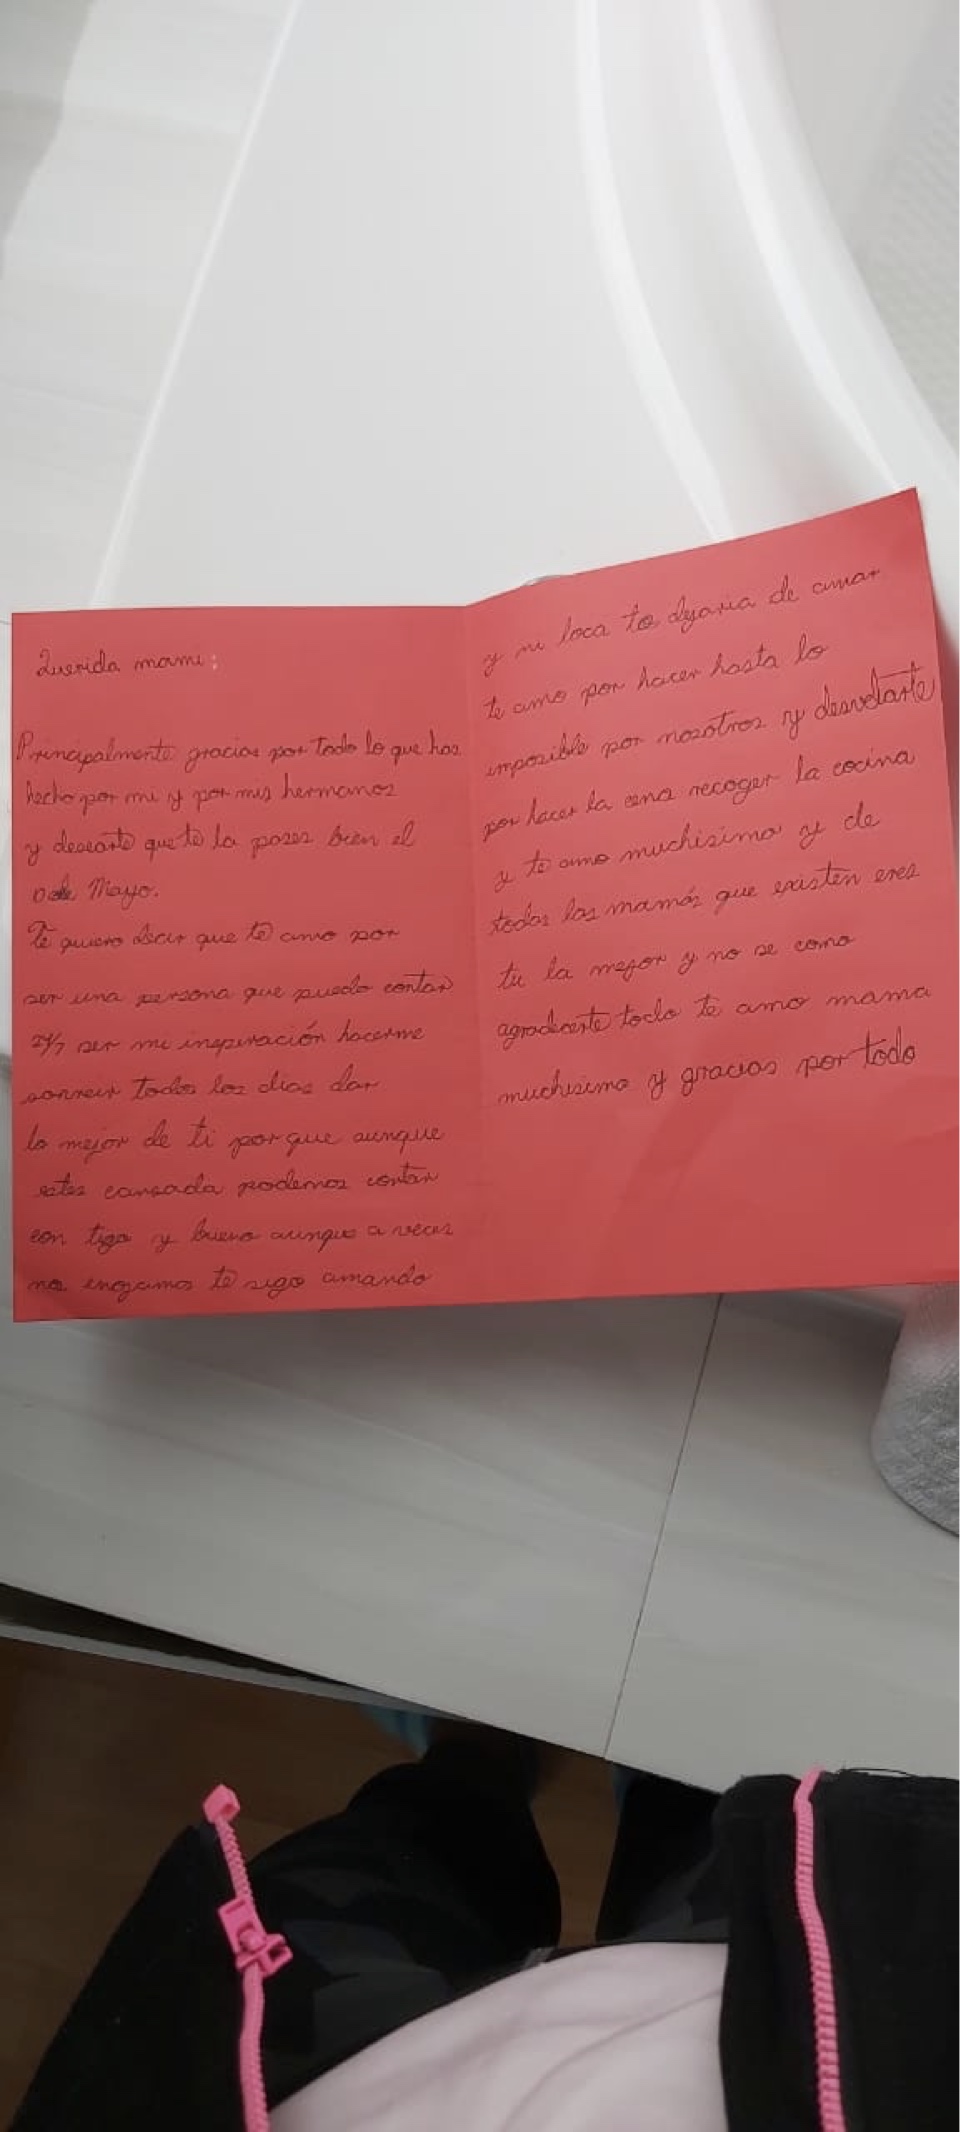 Querida mami:
Principalmente gracias por todo lo que has
hecho por mi y por mis hermanos
y desearte que te la pases bien el
de Mayo.
Te quiero decir que te amo por
ser una persona que puedo contar
ser mi inspiración hacerme
sonreir todos los dias dar
lo mejor de ti por que aunque
estes cansada podemos contar
con tigo y bueno aunque a veces
nos enojamos te sigo amando
y ni loca te dejaria de amar
te amo por hacer hasta lo
imposible por nosotros y desvelarte
por hacer la cena recoger la cocina
y te amo muchisimo y de
todas las mamás que existen eres
tu la mejor y no se como
agradecerte todo te amo mama
muchisimo y gracias por todo